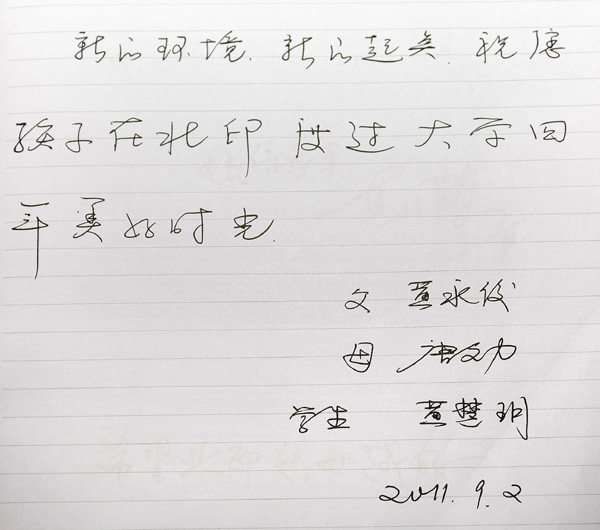 新的环境.新的起点.祝愿
孩子在北印度过大学四
年美好时光.
父 黄永俊
母 唐文力
学生 黄楚玥
2011.9.2